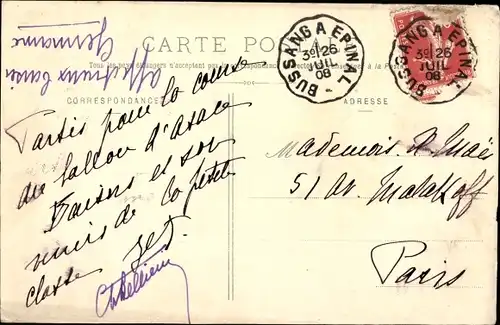 CARTE POS
Tous les pays étrangers n'acceptent pas la
CORRESPONDANCE
ADRESSE
BUSSANG A EPINAL
3° 26
JUIL
08
BUSSANG A EPINAL
3° 26
JUIL
08
affectueux baisers
Germaine
Partis pour la course
du ballon d'Alsace
Baisers et sou
venirs de la petite
classe
Mademois.
51 Av. Malakoff
Paris